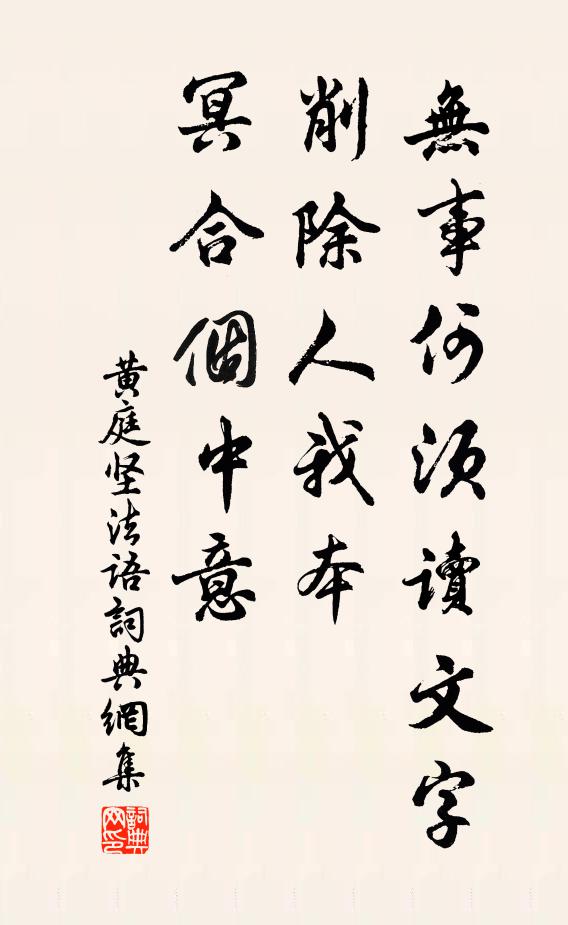 無事何須讀文字
削除人我本
冥合個中意
黄庭坚法语詞典網集
詞典网印